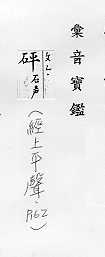 彙音寶鑑
砰石声
(經上平聲.P62)